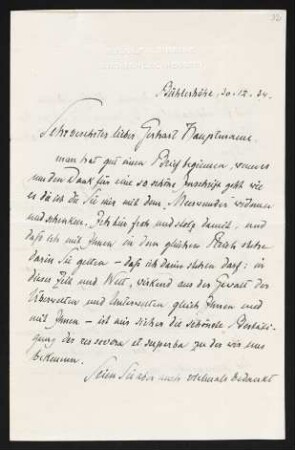 Bühlerhöhe, 20.12.24.
Sehr verehrter lieber Gerhart Hauptmann,
man hat gut einen Brief beginnen, wenn es
um den Dank für eine so schöne Inschrift geht wie
es die ist die Sie mir mit dem "Meerwunder" widmen
und schenken. Ich bin froh und stolz damit, und
daß ich mit Ihnen in dem gleichen Reich stehe
darin Sie gelten – daß ich darin stehen darf: in
dieser Zeit und Welt, wirkend aus der Gewalt der
Überwelten und Unterwelten gleich Ihnen und
mit Ihnen – ist mir sicher die schönste Bestäti-
gung der res severa et superba zu der wir uns
bekennen.
Seien Sie aber auch vielmals bedankt